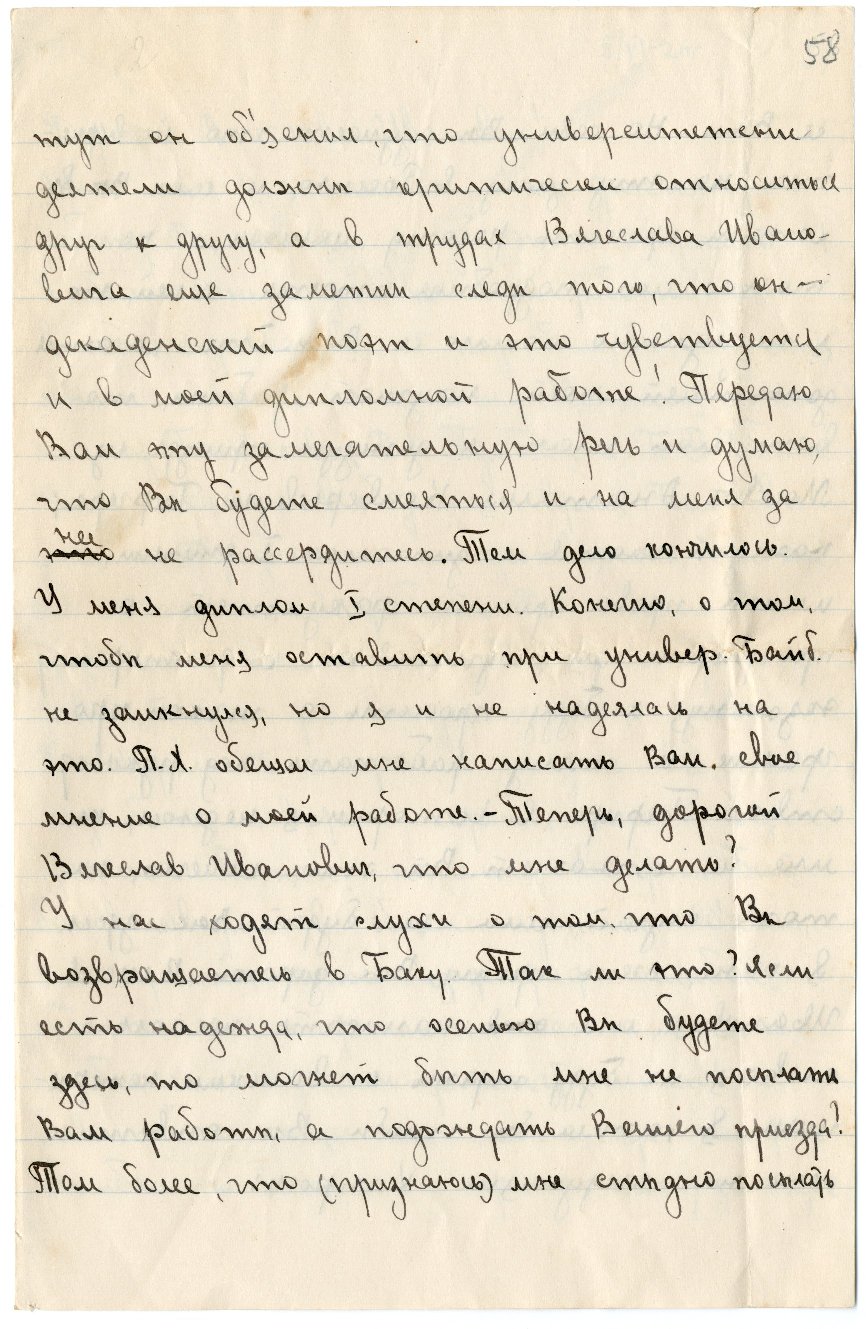 58
тут он об'яснил, что университетские
деятели должны критически относиться
друг к другу, а в трудах Вячеслава Ивано-
вича еще заметны следы того, что он —
декаденский поэт и это чувствуется
и в моей дипломной работе! Передаю
Вам эту замечательную речь и думаю,
что Вы будете смеяться и на меня за
нее не рассердитесь. Тем дело кончилось.
У меня диплом I степени. Конечно, о том,
чтобы меня оставить при универ. Байб.
не заикнулся, но я и не надеялась на
это. П.Х. обещал мне написать Вам свое
мнение о моей работе. – Теперь, дорогой
Вячеслав Иванович, что мне делать?
У нас ходят слухи о том, что Вы
возвращаетесь в Баку. Так ли это? Если
есть надежда, что осенью Вы будете
здесь, то может быть мне не посылать
Вам работы, а подождать Вашего приезда?
Тем более, что (признаюсь) мне стыдно посылать